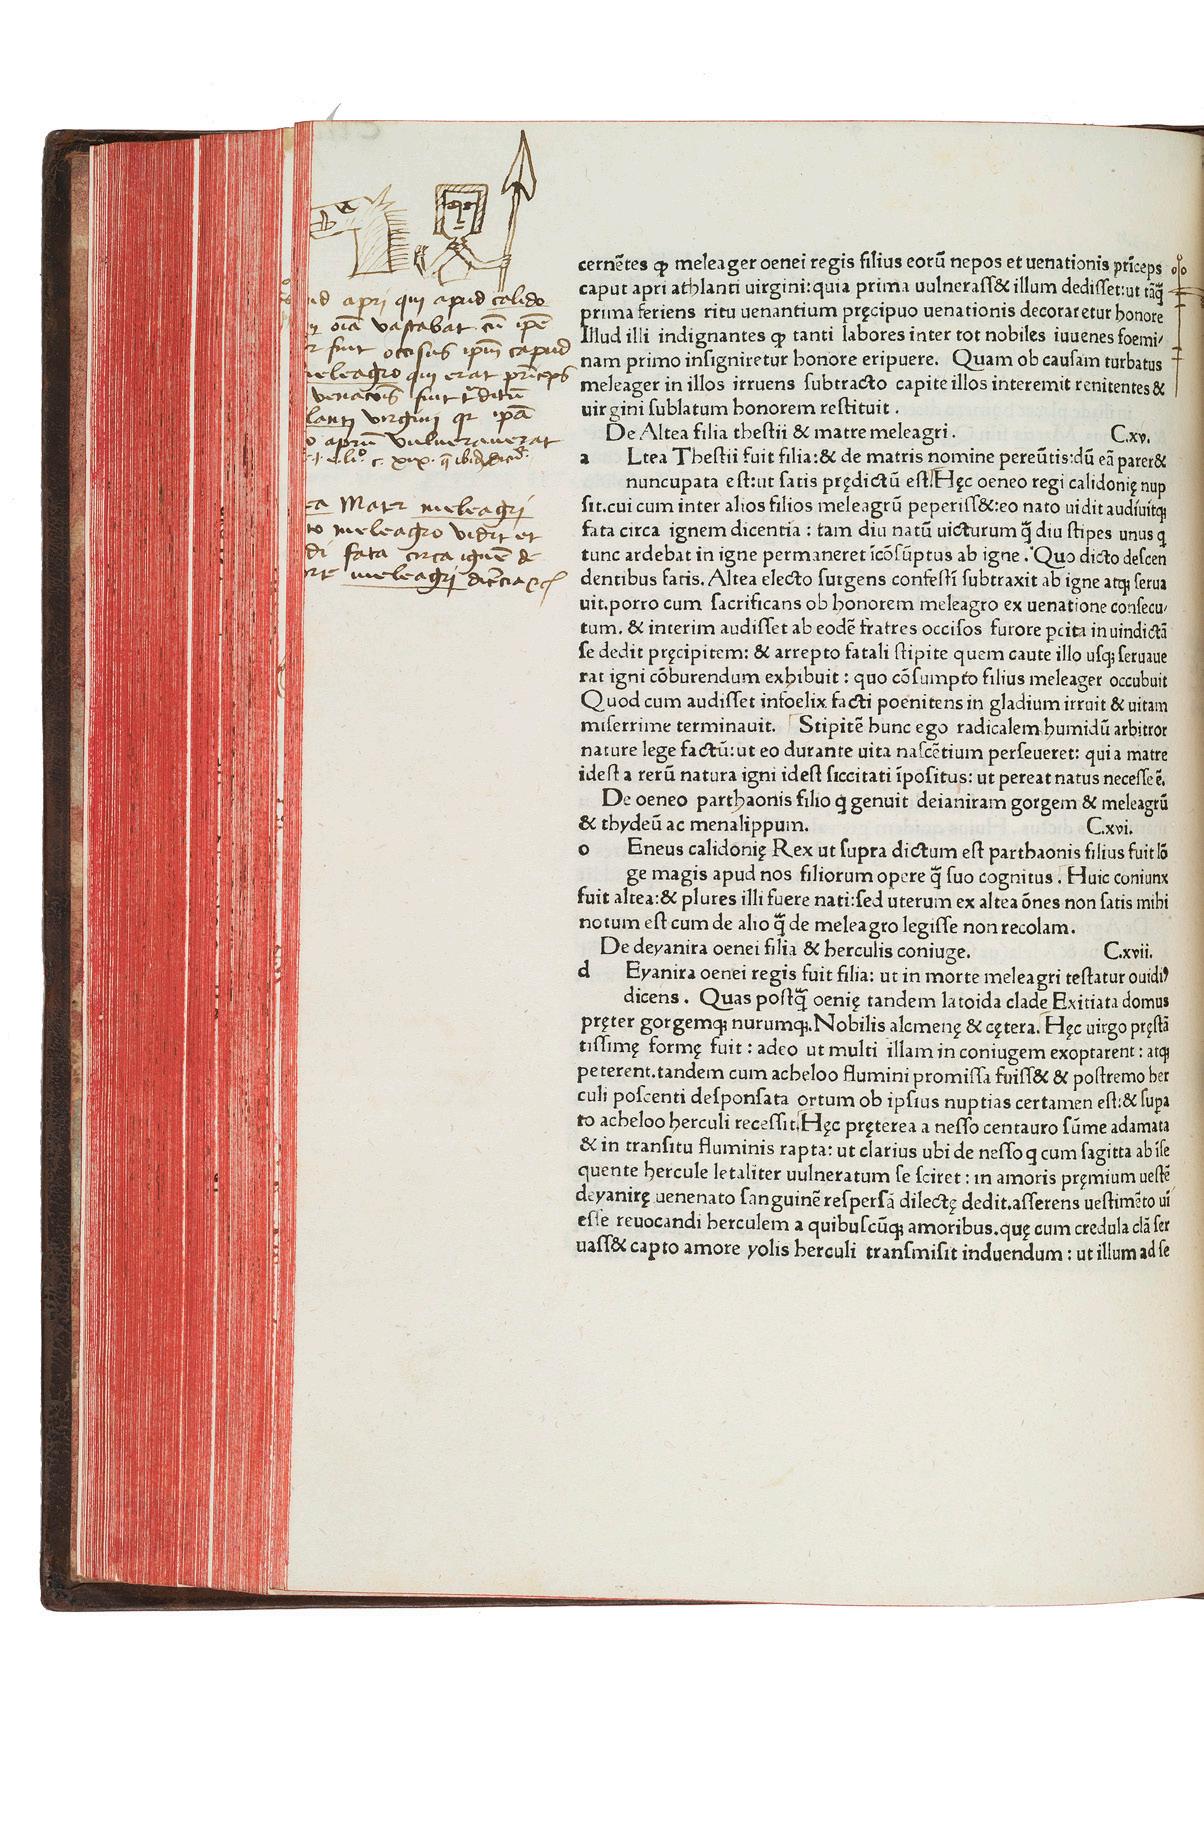 ud apri qui apud calido
oīa vastabat cū ipē
fuit occisus ipm̄ capud
meleagro qui erat prīceps
venacōis fuit t̄ditū
lanti virgini qr ipā
o aprū vulnerauerat
ea Mater meleagri
to meleagro vidit et
di fata circa ignē de
orte meleagri dic̄cia
cernētes ꝙ meleager oenei regis filius eorū nepos et uenationis prīceps
caput apri athlanti uirgini: quia prima uulnerass& illum dedisset: ut tāq̄
prima feriens ritu uenantium pręcipuo uenationis decoraretur honore
Illud illi indignantes ꝙ tanti labores inter tot nobiles iuuenes foemi/
nam primo insigniretur honore eripuere. Quam ob causam turbatus
meleager in illos irruens subtracto capite illos interemit renitentes &
uirgini sublatum honorem restituit.
De Altea filia thestii & matre meleagri. C.xv.
a Ltea Thestii fuit filia: & de matris nomine pereūtis: dū eā parer&
nuncupata est: ut satis prędictū est. Hęc oeneo regi calidonię nup
sit. cui cum inter alios filios meleagrū peperiss&: eo nato uidit audiuitq;
fata circa ignem dicentia: tam diu natū uicturum q̄ diu stipes unus q
tunc ardebat in igne permaneret īcōsūptus ab igne. Quo dicto descen
dentibus fatis. Altea electo surgens confestī subtraxit ab igne atq; serua
uit. porro cum sacrificans ob honorem meleagro ex uenatione consecu/
tum. & interim audisset ab eodē fratres occisos furore ꝑcita in uindictā
se dedit pręcipitem: & arrepto fatali stipite quem caute illo usq; seruaue
rat igni cōburendum exhibuit: quo cōsumpto filius meleager occubuit
Quod cum audisset infoelix facti poenitens in gladium irruit & uitam
miserrime terminauit. Stipitē hunc ego radicalem humidū arbitror
nature lege factū: ut eo durante uita nascētium perseueret: qui a matre
idest a rerū natura igni idest siccitati īpositus: ut pereat natus necesse ē.
De oeneo parthaonis filio q̇ genuit deianiram gorgem & meleagrū
& thydeū ac menalippum. C.xvi.
o Eneus calidonię Rex ut supra dictum est parthaonis filius fuit lō
ge magis apud nos filiorum opere q̄ suo cognitus. Huic coniunx
fuit altea: & plures illi fuere nati: sed uterum ex altea ōnes non satis mihi
notum est cum de alio q̄ de meleagro legisse non recolam.
De deyanira oenei filia & herculis coniuge. C.xvii.
d Eyanira oenei regis fuit filia: ut in morte meleagri testatur ouidiꝰ
dicens. Quas postq̄ oenię tandem latoida clade Exitiata domus
pręter gorgemq; nurumq;. Nobilis alcmenę & cętera. Hęc uirgo pręstā
tissimę formę fuit: adeo ut multi illam in coniugem exoptarent: atq;
peterent. tandem cum acheloo flumini promissa fuiss& & postremo her
culi poscenti desponsata ortum ob ipsius nuptias certamen est: & supa
to acheloo herculi recessit. Hęc pręterea a nesso centauro sūme adamata
& in transitu fluminis rapta: ut clarius ubi de nesso q cum sagitta ab īse
quente hercule letaliter uulneratum se sciret: in amoris pręmium uestē
deyanirę uenenato sanguinē respersā dilectę dedit. asserens uestimēto uī
esse reuocandi herculem a quibuscūq; amoribus. quę cum credula clā ser
uass& capto amore yolis herculi transmisit induendum: ut illum ad se